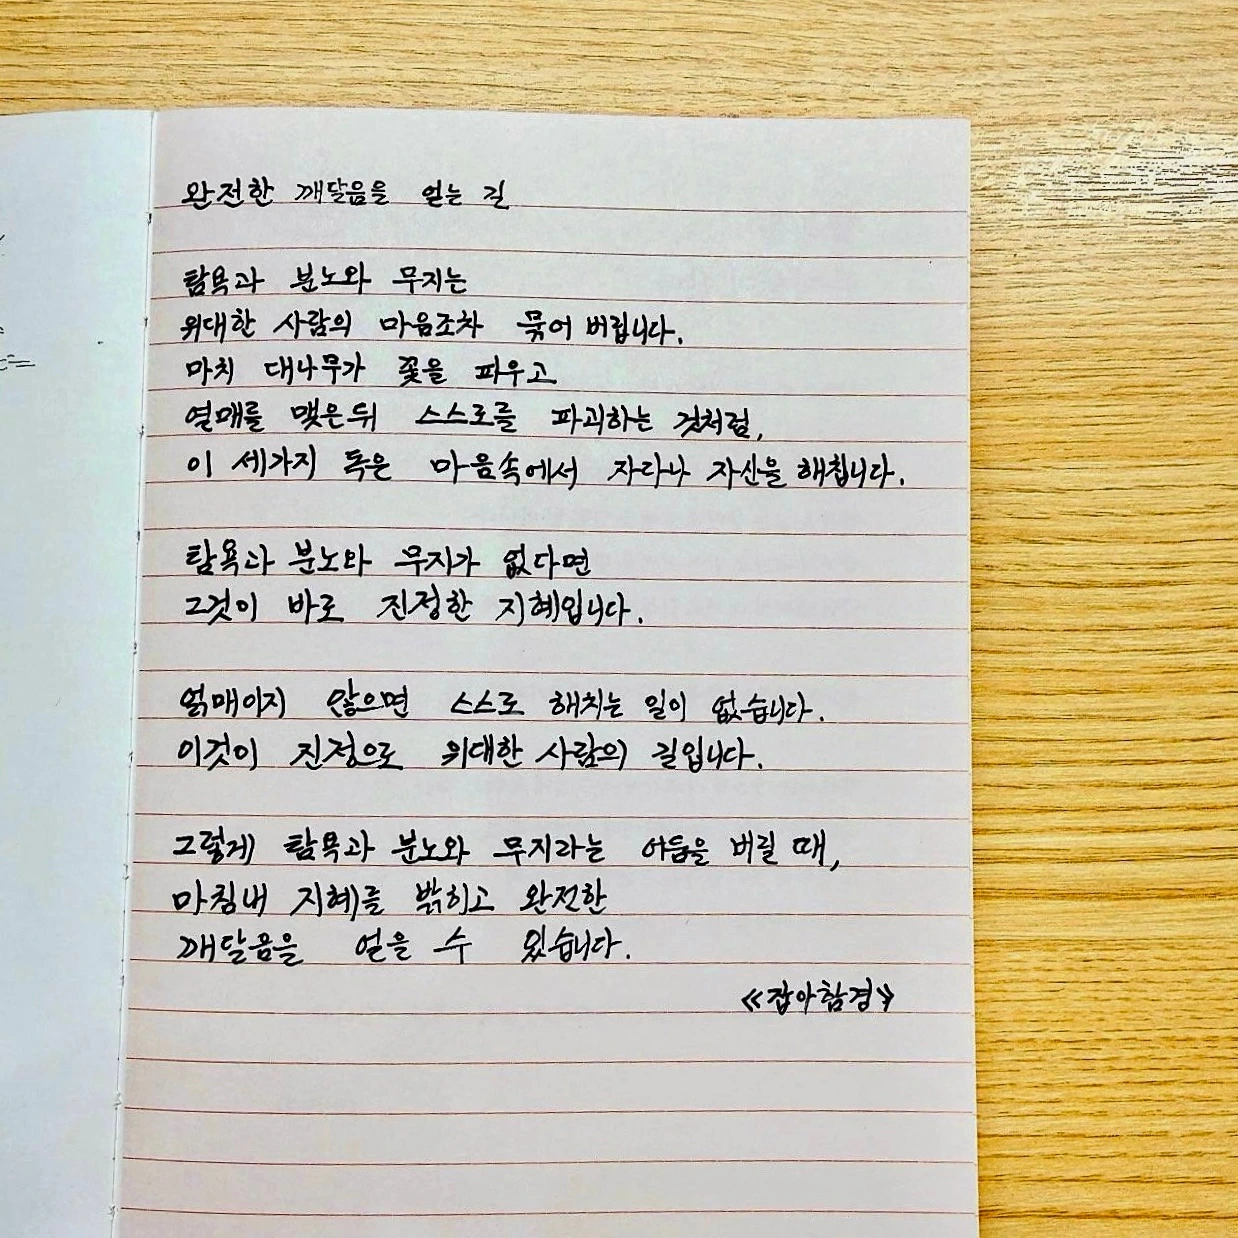 완전한 깨달음을 얻는 길
탐욕과 분노와 무지는
위대한 사람의 마음조차 묶어 버립니다.
마치 대나무가 꽃을 피우고
열매를 맺은뒤 스스로를 파괴하는 것처럼,
이 세가지 독은 마음속에서 자라나 자신을 해칩니다.
탐욕과 분노와 무지가 없다면
그것이 바로 진정한 지혜입니다.
얽매이지 않으면 스스로 해치는 일이 없습니다.
이것이 진정으로 위대한 사람의 길입니다.
그렇게 탐욕과 분노와 무지라는 어둠을 버릴 때,
마침내 지혜를 밝히고 완전한
깨달음을 얻을 수 있습니다.
《잡아함경》